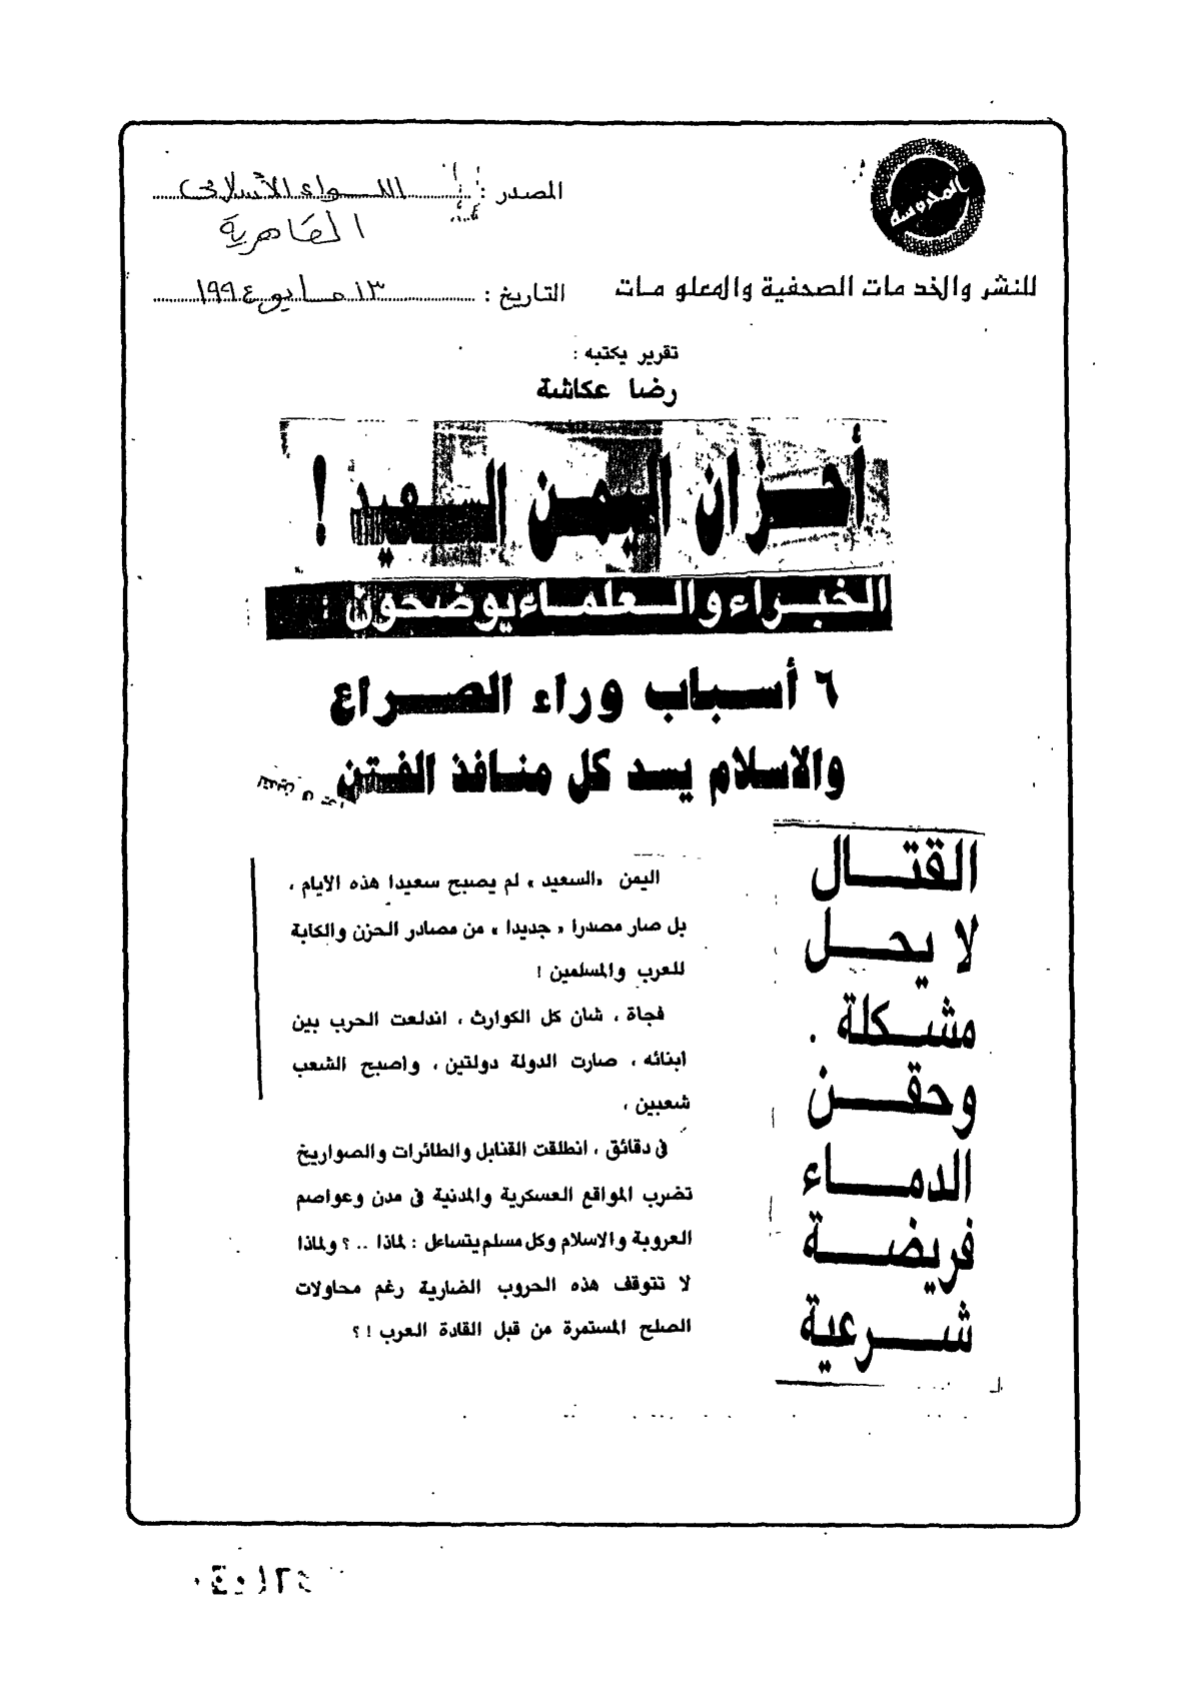 المحروسة
للنشر والخدمات الصحفية والمعلومات
المصدر : اللواء الأسلامى
القاهرية
التاريخ : ١٣ مايو ١٩٩٤
تقرير يكتبه :
رضا عكاشة
أحزان اليمن السعيد !
الخبراء والعلماء يوضحون :
٦ أسباب وراء الصراع
والاسلام يسد كل منافذ الفتن
القتال
لا يحل
مشكلة .
وحقن
الدماء
فريضة
شرعية
اليمن «السعيد» لم يصبح سعيدا هذه الايام ،
بل صار مصدرا « جديدا » من مصادر الحزن والكابة
للعرب والمسلمين !
فجاة ، شان كل الكوارث ، اندلعت الحرب بين
ابنائه ، صارت الدولة دولتين ، واصبح الشعب
شعبين ،
فى دقائق ، انطلقت القنابل والطائرات والصواريخ
تضرب المواقع العسكرية والمدنية فى مدن وعواصم
العروبة والاسلام وكل مسلم يتساعل : لماذا .. ؟ ولماذا
لا تتوقف هذه الحروب الضارية رغم محاولات
الصلح المستمرة من قبل القادة العرب ! ؟